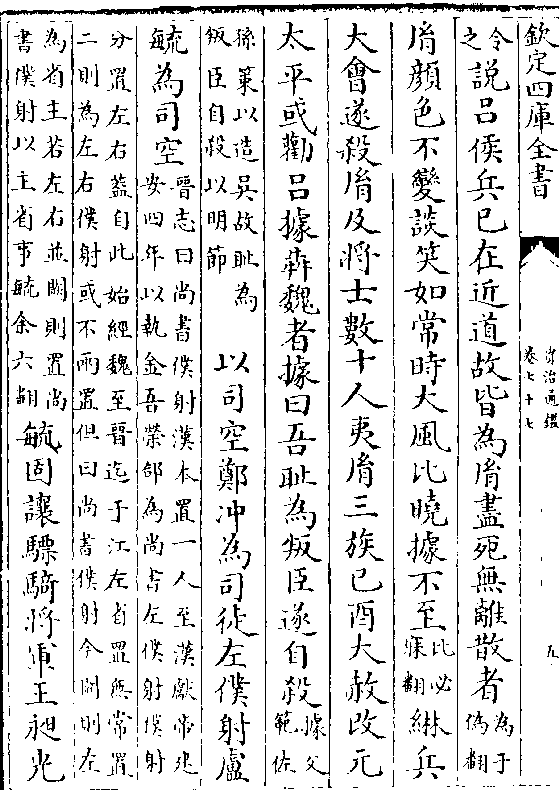 欽定四庫全書
資治通鑑
卷七十七
九
令
之
說吕侯兵已在近道故皆為胤盡死無離散者
為于
偽翻
胤顔色不變談笑如常時大風比曉據不至
比必
寐翻
綝兵
大會遂殺胤及將士數十人夷胤三族己酉大赦改元
太平或勸吕據奔魏者據曰吾耻為叛臣遂自殺
據父
範佐
孫策以造吳故耻為
叛臣自殺以明節
以司空鄭冲為司徒左僕射盧
毓為司空
晉志曰尚書僕射漢本置一人至漢獻帝建
安四年以執金吾榮郃為尚書左僕射僕射
分置左右葢自此始經魏至晉迄于江左省置無常置
二則為左右僕射或不兩置但曰尚書僕射令闕則左
為省主若左右並闕則置尚
書僕射以主省事毓余六翻
毓固讓驃騎將軍王昶光